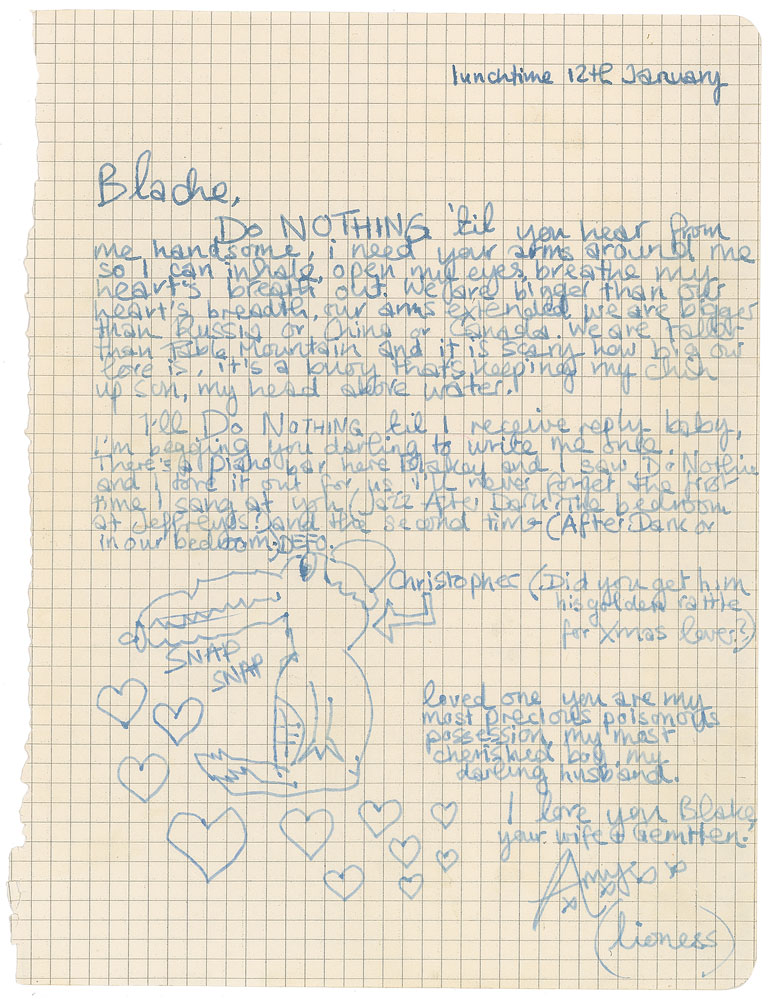 lunchtime 12th January
Blache,
Do NOTHING 'til you hear from
me handsome, i need your arms around me
so I can inhale, open my eyes, breathe my
heart's breath out. We are bigger than our
heart's breadth, our arms extended we are bigger
than Russia or China or Canada. We are Taller
than Table Mountain and it is scary how big our
love is, it's a buoy that's keeping my chin
up son, my head above water.
I'll Do NOTHING til I receive reply baby,
I'm begging you darling to write me one.
There's a piano bar here Blakey and I saw Do Nothin
and I tore it out for us i'll never forget the first
time I sang at you (Jazz After Dark? The bedroom
at Jeffreys?) and the second time (After Dark or
in our bedroom) DEFO.
Christopher (Did you get him
his golden rattle
for Xmas lover?)
SNAP
SNAP
loved one you are my
most precious poisonous
possession, my most
cherished boy, my
darling husband.
I love you Blake,
your wife &
Amy x x x
(lioness)